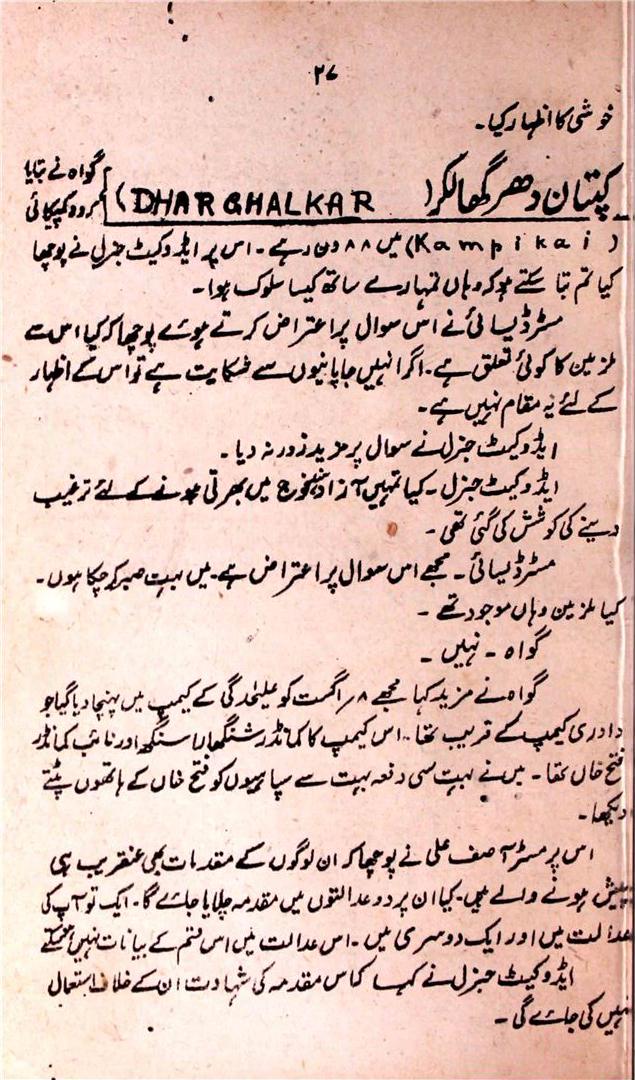 ۲۷
خوشی کا اظہار کیا۔
کپتان دھر گھالکر (DHARGHALKAR) گواہ نے بتایا
کہ وہ کیمپکائی
(Kampikai) میں ۸۸ دن رہے۔ اس پر ایڈوکیٹ جنرل نے پوچھا
کیا تم بتا سکتے ہو کہ وہاں تمہارے ساتھ کیسا سلوک ہوا۔
مسٹر ڈیسائی نے اس سوال پر اعتراض کرتے ہوئے پوچھا کہ کیا اس سے
ملزمین کا کوئی تعلق ہے۔ اگر انہیں جاپانیوں سے شکایت ہے تو اس کے اظہار
کے لئے یہ مقام نہیں ہے۔
ایڈوکیٹ جنرل نے سوال پر مزید زور نہ دیا۔
ایڈوکیٹ جنرل۔ کیا تمہیں آزاد ہند فوج میں بھرتی ہونے کے لئے ترغیب
دینے کی کوشش کی گئی تھی۔
مسٹر ڈیسائی۔ مجھے اس سوال پر اعتراض ہے۔ میں بہت صبر کر چکا ہوں۔
کیا ملزمین وہاں موجود تھے۔
گواہ۔ نہیں۔
گواہ نے مزید کہا مجھے ۸؍ اگست کو علیحدگی کے کیمپ میں پہنچا دیا گیا جو
دادری کیمپ کے قریب تھا۔ اس کیمپ کا کمانڈر شنگھارا سنگھ اور نائب کمانڈر
فتح خاں تھا۔ میں نے بہت سی دفعہ بہت سے سپاہیوں کو فتح خاں کے ہاتھوں پٹتے
دیکھا۔
اس پر مسٹر آصف علی نے پوچھا کہ ان لوگوں کے مقدمات بھی عنقریب ہی
پیش ہونے والے ہیں۔ کیا ان پر دو عدالتوں میں مقدمہ چلایا جائے گا۔ ایک تو آپ کی
عدالت میں اور ایک دوسری میں۔ اس عدالت میں اس قسم کے بیانات نہیں
ایڈوکیٹ جنرل نے کہا کہ اس مقدمہ کی شہادت ان کے خلاف استعمال
نہیں کی جائے گی۔